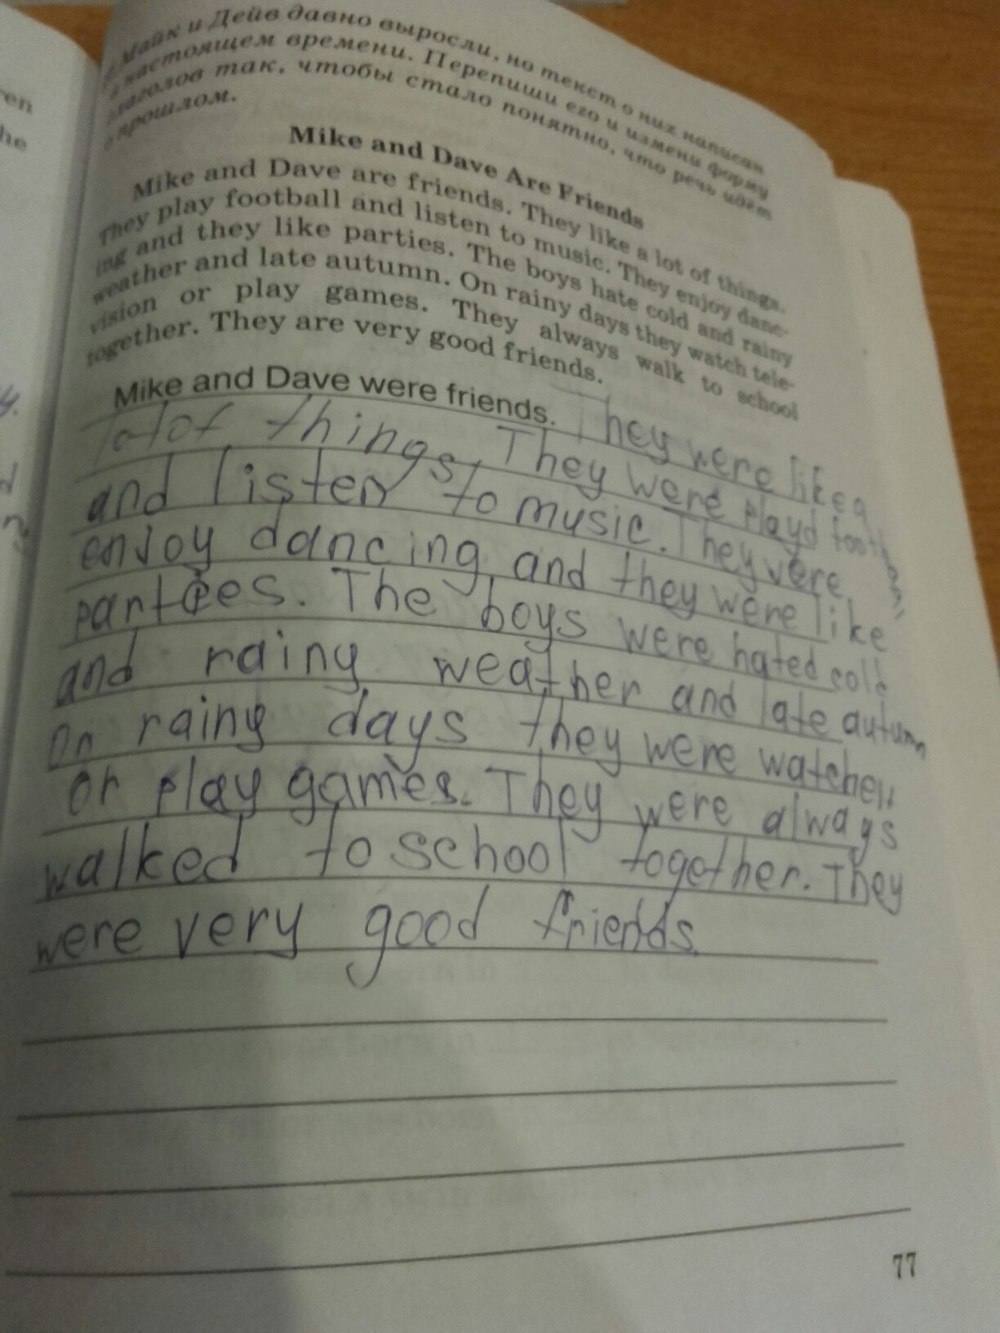 Майк и Дейв давно выросли, но текст о них написан
в настоящем времени. Перепиши его и измени форму
глаголов так, чтобы стало понятно, что речь идёт
о прошлом.
Mike and Dave Are Friends
Mike and Dave are friends. They like a lot of things.
They play football and listen to music. They enjoy danc-
ing and they like parties. The boys hate cold and rainy
weather and late autumn. On rainy days they watch tele-
vision or play games. They always walk to school
together. They are very good friends.
Mike and Dave were friends. They were like a
lot of things. They were playd football
and listen to music. They were
enjoy dancing and they were like
partees. The boys were hated cold
and rainy weather and late autumn
On rainy days they were watched
or play games. They were always
walked to school together. They
were very good friends.
77
en
he
y.
d